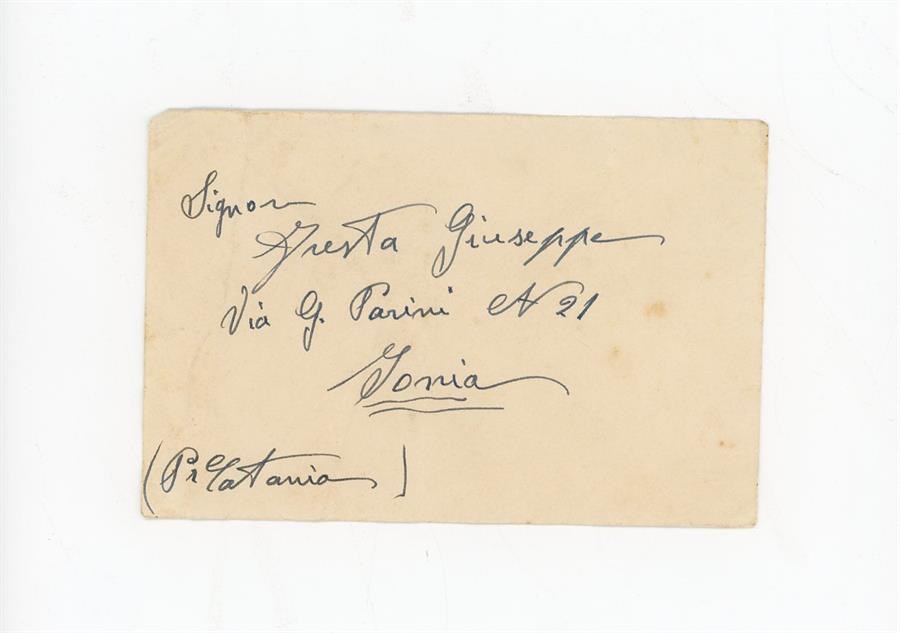 Signor
Giuseppe
Via G. Parini N 21
Jonia
(Pr Catania)